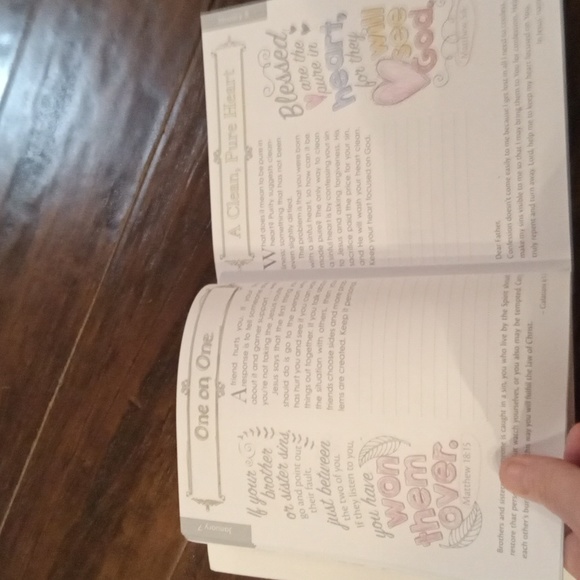 January 7
One on One
If your
brother
or sister sins,
go and point out
their fault,
just between
the two of you.
If they listen to you,
you have
won
them
over.
Matthew 18:15
A friend hurts you;
response is to tell
about it and garner support.
you're not taking the Jesus
Jesus says that the first thing
should do is go to the person
has hurt you and see if you can
things out together. If you talk
the situation with others, then
friends choose sides and more
lems are created. Keep it
Brothers and is caught in a sin, you who live by the Spirit
restore that watch yourselves, or you also may be tempted.
each other's way you will fulfill the law of Christ.
A Clean, Pure Heart
Blessed
are the
pure in
heart,
for they
will
see
God.
Matthew 5:8
What does it mean to be pure in
heart? Purity suggests clean-
ness, something that has not been
even slightly dirtied.
The problem is that you were born
with a sinful heart, so how can it be
made pure? The only way to clean
a sinful heart is by confessing your sin
to Jesus and asking forgiveness. His
sacrifice paid the price for your sin,
and He will wash your heart clean.
Keep your heart focused on God.
Dear Father,
Confession doesn't come easily to me
make my sins visible to me so that I may bring them to You for
truly repent and turn away. Lord, help me to keep my heart focused on You.
In Jesus'